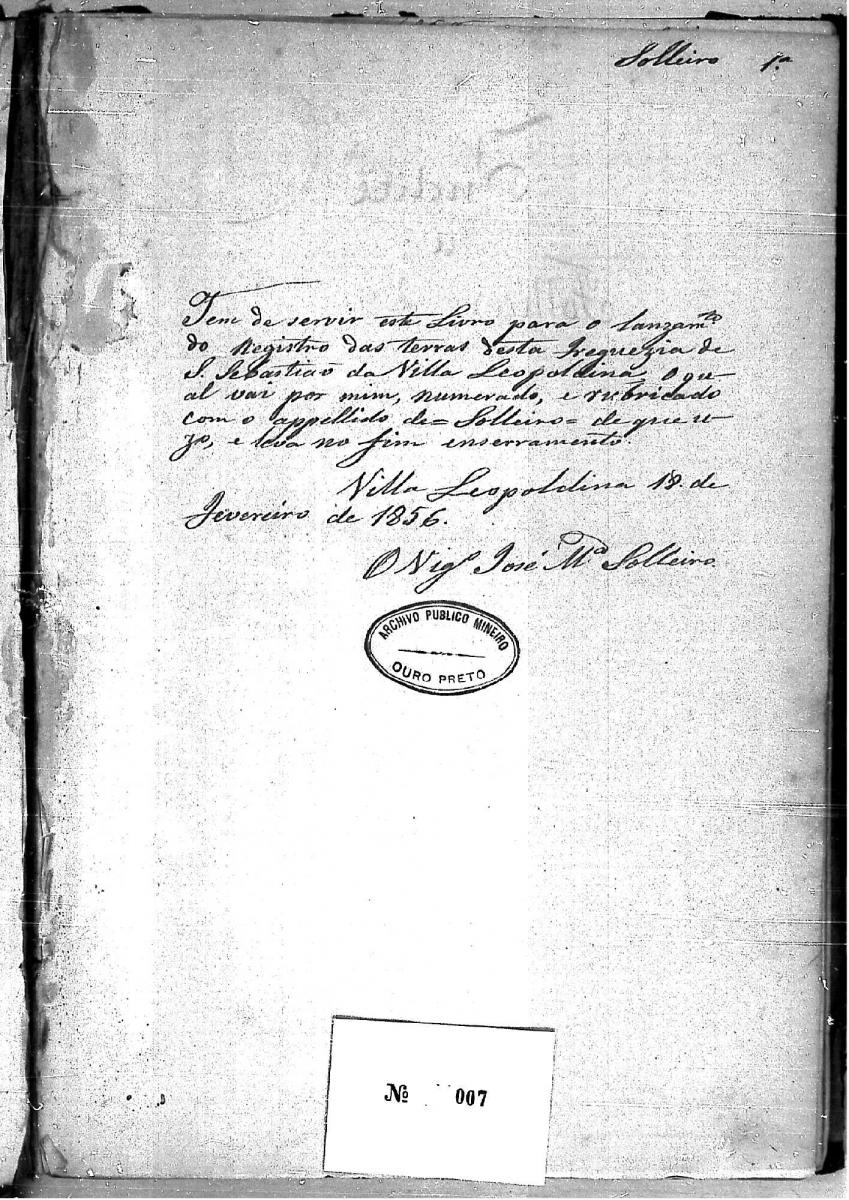 Solleiro 1.ª
Tem de servir este Livro para o lanzam.to
do Registro das terras desta Freguezia de
S. Sebastião da Villa Leopoldina, o qu-
al vai por mim, numerado, e rubricado
com o appellido de = Solleiro = de que u-
zo, e leva no fim enserramento.
Villa Leopoldina 18 de
Fevereiro de 1856.
O Vigr.o José M.a Solleiro
ARCHIVO PUBLICO MINEIRO
OURO PRETO
Nº 007